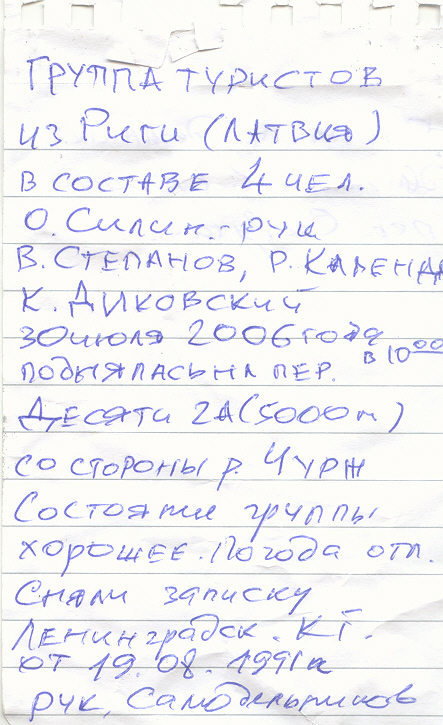 ГРУППА ТУРИСТОВ
ИЗ РИГИ (ЛАТВИЯ)
В СОСТАВЕ 4 ЧЕЛ.
О. СИЛИН. РУК
В. СТЕПАНОВ, Р. КАЛЕНДА
К. ДИКОВСКИЙ
30 ИЮЛЯ 2006 года
ПОДНЯЛАСЬ НА ПЕР. в 10⁰⁰
ДЕСЯТИ 2А (5000 м)
СО СТОРОНЫ р. ЧУРЖ
Состояние группы
хорошее. Погода отл.
Сняли записку
Ленинградск. КТ.
от 19.08.1991г
рук. Самодельников